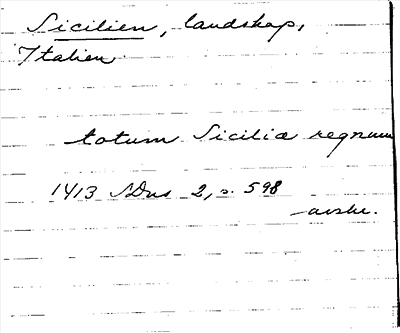 Sicilien, landskap,
Italien
totum Siciliæ regnum
1413 SDns 2, s. 598
avskr.